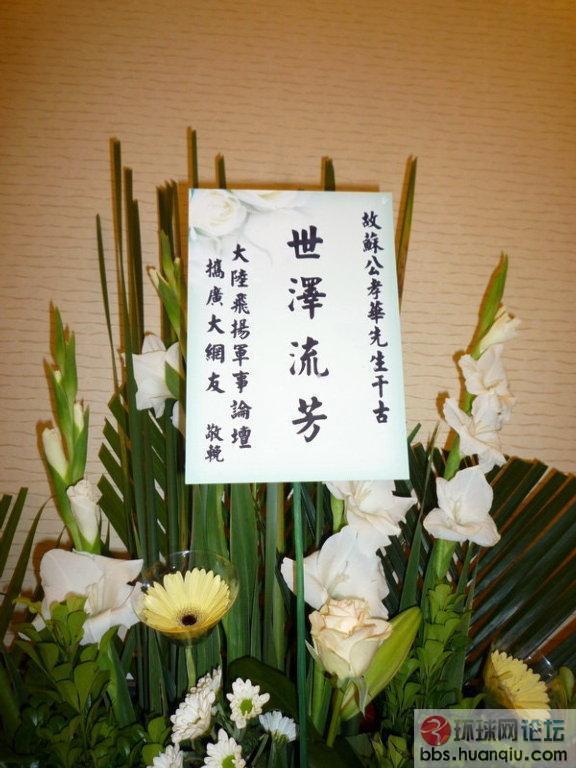 故蘇公孝華先生千古
世澤流芳
大陸飛揚軍事論壇
攜廣大網友 敬輓
环球网论坛
bbs.huanqiu.com